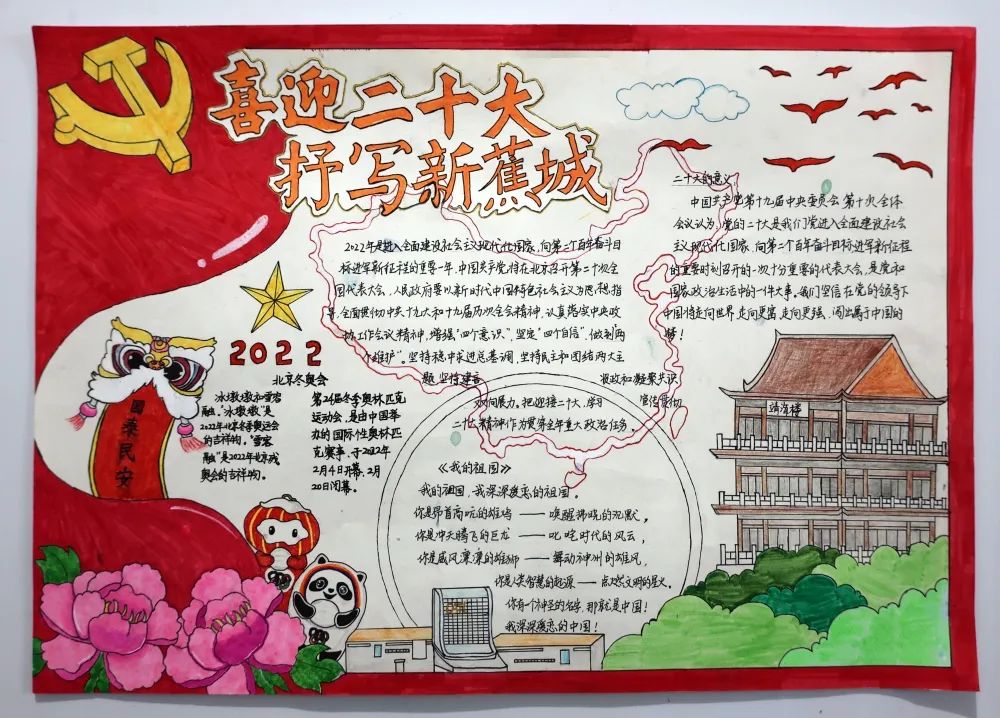 喜迎二十大
抒写新蕉城
2022年是进入全面建设社会主义现代化国家、向第二个百年奋斗目
标进军新征程的重要一年,中国共产党将在北京召开第二十次全
国代表大会,人民政府要以新时代中国特色社会主义为思想指
导,全面贯彻中央十九大和十九届历次全会精神,认真落实中央政
协工作会议精神,增强"四个意识"、坚定"四个自信"、做到两
个维护"。坚持稳中求进总基调,坚持民主和团结两大主
题,坚持建言资政和凝聚共识
双向展力。把迎接二十大、学习宣传贯彻
二十大精神作为贯穿全年重大政治任务。
二十大的意义:
中国共产党第十九届中央委员会第十次全体
会议认为,党的二十大是我们党进入全面建设社会
主义现代化国家、向第二个百年奋斗目标进军新征程
的重要时刻召开的一次十分重要的代表大会,是党和
国家政治生活中的一件大事。我们坚信在党的领导下
中国将走向世界,走向更富,走向更强,闯出属于中国的
路!
2022
北京冬奥会
冰墩墩和雪容
融,"冰墩墩"是
2022年北京冬季奥运会
的吉祥物,"雪容
融"是2022年北京残
奥会的吉祥物。
第24届冬季奥林匹克
运动会,是由中国举
办的国际性奥林匹
克赛事,于2022年
2月4日开幕,2月
20日闭幕。
国泰民安
靖海楼
《我的祖国》
我的祖国,我深深爱恋的祖国。
你是昂首高吭的雄鸡——唤醒拂晓的沉默,
你是冲天腾飞的巨龙——叱咤时代的风云,
你是威风凛凛的雄狮——舞动神州的雄风,
你是人类智慧的起源——点燃文明的星火。
你有一个神圣的名字,那就是中国!
我深深爱恋的中国!